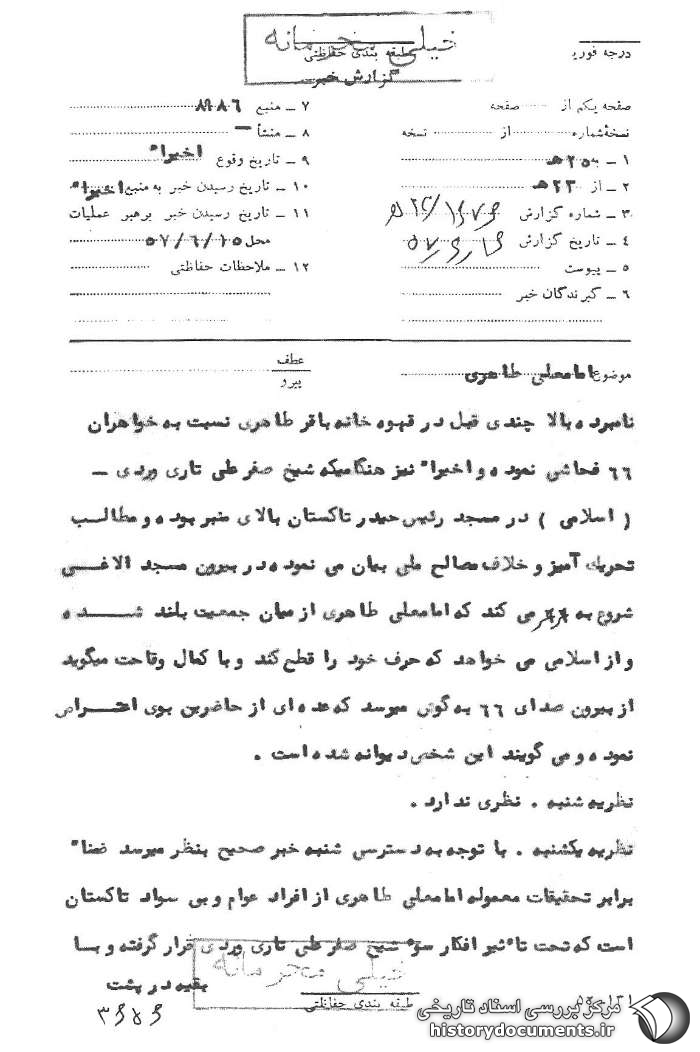 خیلی محرمانه
درجه فوریت
طبقه بندی حفاظتی
گزارش خبر
صفحه یکم از صفحه
نسخه شماره از نسخه
۱ ـ به ۲۵ هـ
۲ ـ از ۲۳ هـ
۳ ـ شماره گزارش
۴ ـ تاریخ گزارش
۵ ـ پیوست
۶ ـ گیرندگان خبر
۷ ـ منبع ۸۹۸۶
۸ ـ منشأ ـ
۹ ـ تاریخ وقوع اخیرا"
۱۰ ـ تاریخ رسیدن خبر به منبع اخیرا"
۱۱ ـ تاریخ رسیدن خبر برهبر عملیات
محل ۵۷/۶/۱۵
۱۲ ـ ملاحظات حفاظتی
موضوع امامعلی طاهری
عطف
پیرو
نامبرده بالا چندی قبل در قهوه خانه باقر طاهری نسبت به خواهران
۶۶ فحاشی نموده و اخیرا" نیز هنگامیکه شیخ صفرعلی تاری وردی ـ
( اسلامی ) در مسجد رئیس حیدر تاکستان بالای منبر بوده و مطالب
تحریک آمیز و خلاف مصالح ملی بیان می نموده در بیرون مسجد الاغی
شروع به می کند که امامعلی طاهری از میان جمعیت بلند شده
و از اسلامی می خواهد که حرف خود را قطع کند و با کمال وقاحت میگوید
از بیرون صدای ۶۶ به گوش میرسد که عده ای از حاضرین بوی اعتراض
نموده و می گویند این شخص دیوانه شده است .
نظریه شنبه . نظری ندارد .
نظریه یکشنبه . با توجه به دسترسی شنبه خبر صحیح بنظر میرسد ضمنا"
برابر تحقیقات معموله امامعلی طاهری از افراد عوام و بی سواد تاکستان
است که تحت تاثیر افکار سوء شیخ صفرعلی تاری وردی قرار گرفته و بسا
بقیه در پشت
خیلی محرمانه
طبقه بندی حفاظتی
مرکز بررسی اسناد تاریخی
historydocuments.ir